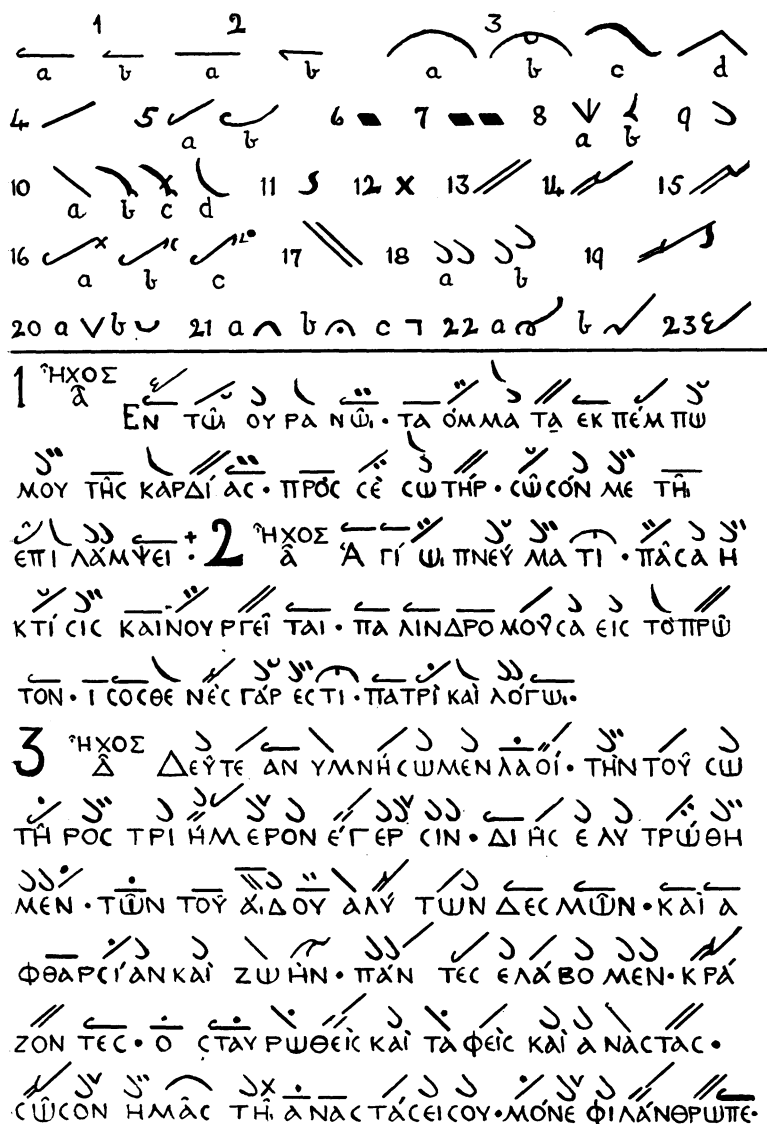 1 2 3
a b a b a b c d
4 5 6 7 8 9
a b a b
10 11 12 13 14 15
a b c d
16 17 18 19
a b c a b
20 a b 21 a b c 22 a b 23
1 ἮΧΟΣ Α̂
ΕΝ ΤῶΙ ΟΥΡΑΝῶΙ · ΤΑ ΌΜΜΑΤΑ ΕΚΠΈΜΠω
ΜΟΥ ΤΗ͂C ΚΑΡΔΊΑC · ΠΡΟC CÈ CωΤΉΡ · Cῶ̂CΌΝ ΜΕ ΤΗ͂Ι
ΕΠΙΛΆΜΨΕΙ : 2 ἮΧΟΣ Α̂ ἉΓΊωΙ ΠΝΕΎΜΑΤΙ · ΠΑ͂CΑ Η
ΚΤΊCΙC ΚΑΙΝΟΥΡΓΕΙ͂ΤΑΙ · ΠΑΛΙΝΔΡΟΜΟΥ͂CΑ ΕΙC ΤΟ ΠΡῶ
ΤΟΝ · ΙCΟCΘΕΝÈC ΓΆΡ ΕCΤΙ · ΠΑΤΡῚ ΚΑῚ ΛΌΓωΙ ·
3 ἮΧΟΣ Δ̂ ΔΕΥ͂ΤΕ ΑΝΥΜΝΉCωΜΕΝ ΛΑΟΊ · ΤῊΝ ΤΟΥ͂ Cω
ΤΗ͂ΡΟC ΤΡΙΉΜΕΡΟΝ ΈΓΕΡCΙΝ · ΔΙ ΗC ΕΛΥΤΡΏΘΗ
ΜΕΝ · ΤῶΝ ΤΟΥ͂ ΆΙΔΟΥ ΑΛΎΤωΝ ΔΕCΜῶΝ · ΚΑῚ Α
ΦΘΑΡCΊΑΝ ΚΑῚ ΖωῊΝ · ΠΆΝΤΕC ΕΛΆΒΟΜΕΝ · ΚΡΆ
ΖΟΝΤΕC · Ο CΤΑΥΡωΘΕῚC ΚΑῚ ΤΑΦΕῚC ΚΑῚ ΑΝΑCΤΑC ·
CῶCΟΝ ΗΜΑ͂C ΤΗ͂Ι ΑΝΑCΤΆCΕΙ CΟΥ · ΜΌΝΕ ΦΙΛΆΝΘΡωΠΕ ·